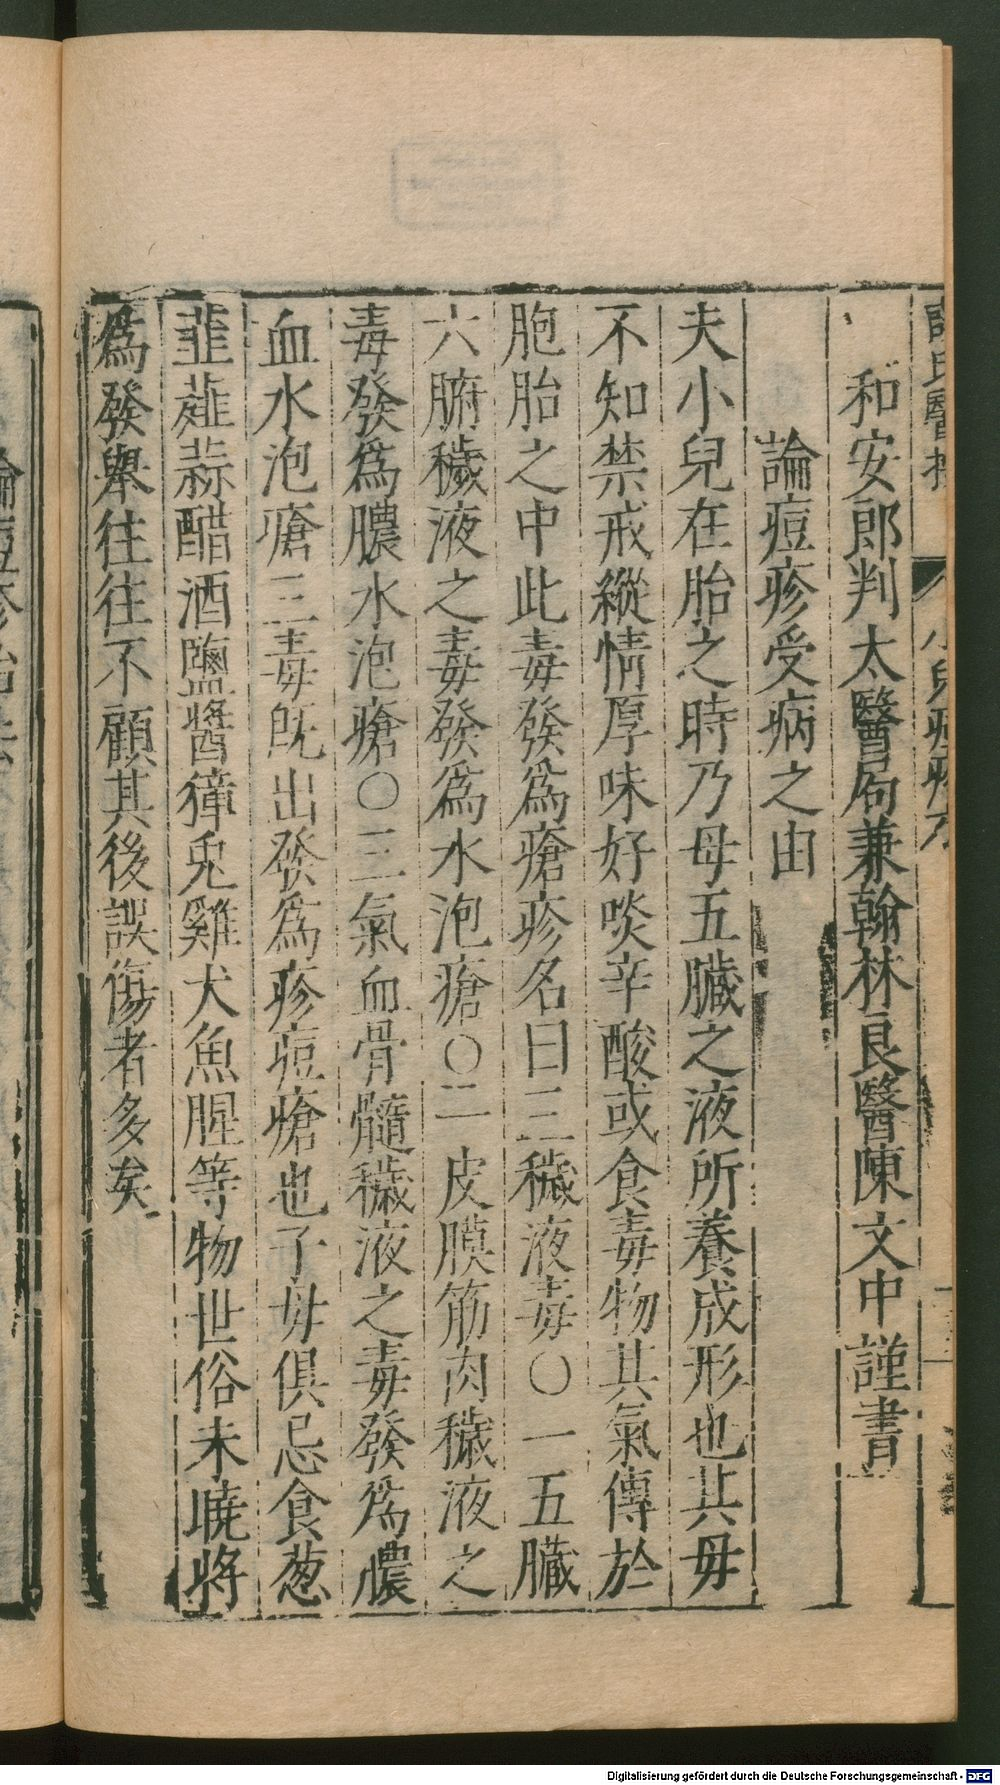 和安郎判太醫局兼翰林良醫陳文中謹書
論痘疹受病之由
夫小兒在胎之時乃母五臟之液所養成形也其母
不知禁戒縱情厚味好啖辛酸或食毒物其氣傳於
胞胎之中此毒發為瘡疹名曰三穢液毒〇一五臟
六腑穢液之毒發為水泡瘡〇二皮膜筋肉穢液之
毒發為膿水泡瘡〇三氣血骨髓穢液之毒發為膿
血水泡瘡三毒旣出發為疹痘瘡也子母俱忌食葱
韭薤蒜醋酒鹽醬獐兎雞犬魚腥等物世俗未曉將
為發舉往往不顧其後誤傷者多矣
Digitalisierung gefördert durch die Deutsche Forschungsgemeinschaft - DFG